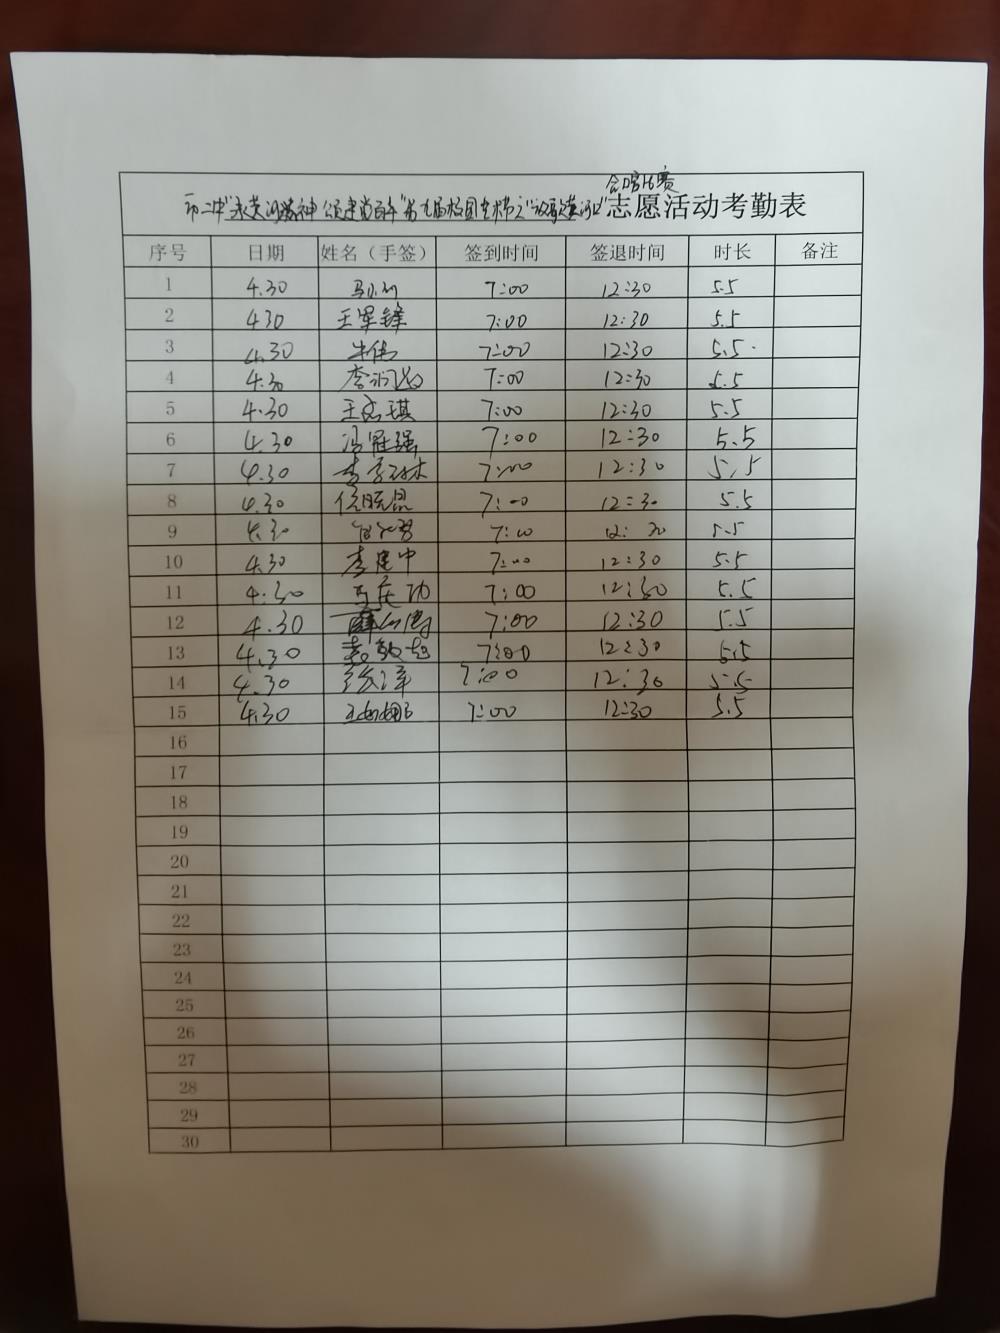 合唱比赛
市二中"承黄河精神 颂建党百年"第九届校园艺术节之"放歌黄河"志愿活动考勤表
序号 日期 姓名（手签） 签到时间 签退时间 时长 备注
1 4.30 7:00 12:30 5.5
2 4.30 王军锋 7:00 12:30 5.5
3 4.30 牛伟 7:00 12:30 5.5
4 4.30 7:00 12:30 5.5
5 4.30 7:00 12:30 5.5
6 4.30 冯冠强 7:00 12:30 5.5
7 4.30 7:00 12:30 5.5
8 4.30 7:00 12:30 5.5
9 4.30 7:00 12:30 5.5
10 4.30 李建中 7:00 12:30 5.5
11 4.30 7:00 12:30 5.5
12 4.30 7:00 12:30 5.5
13 4.30 7:00 12:30 5.5
14 4.30 7:00 12:30 5.5
15 4.30 王娅娜 7:00 12:30 5.5
16
17
18
19
20
21
22
23
24
25
26
27
28
29
30